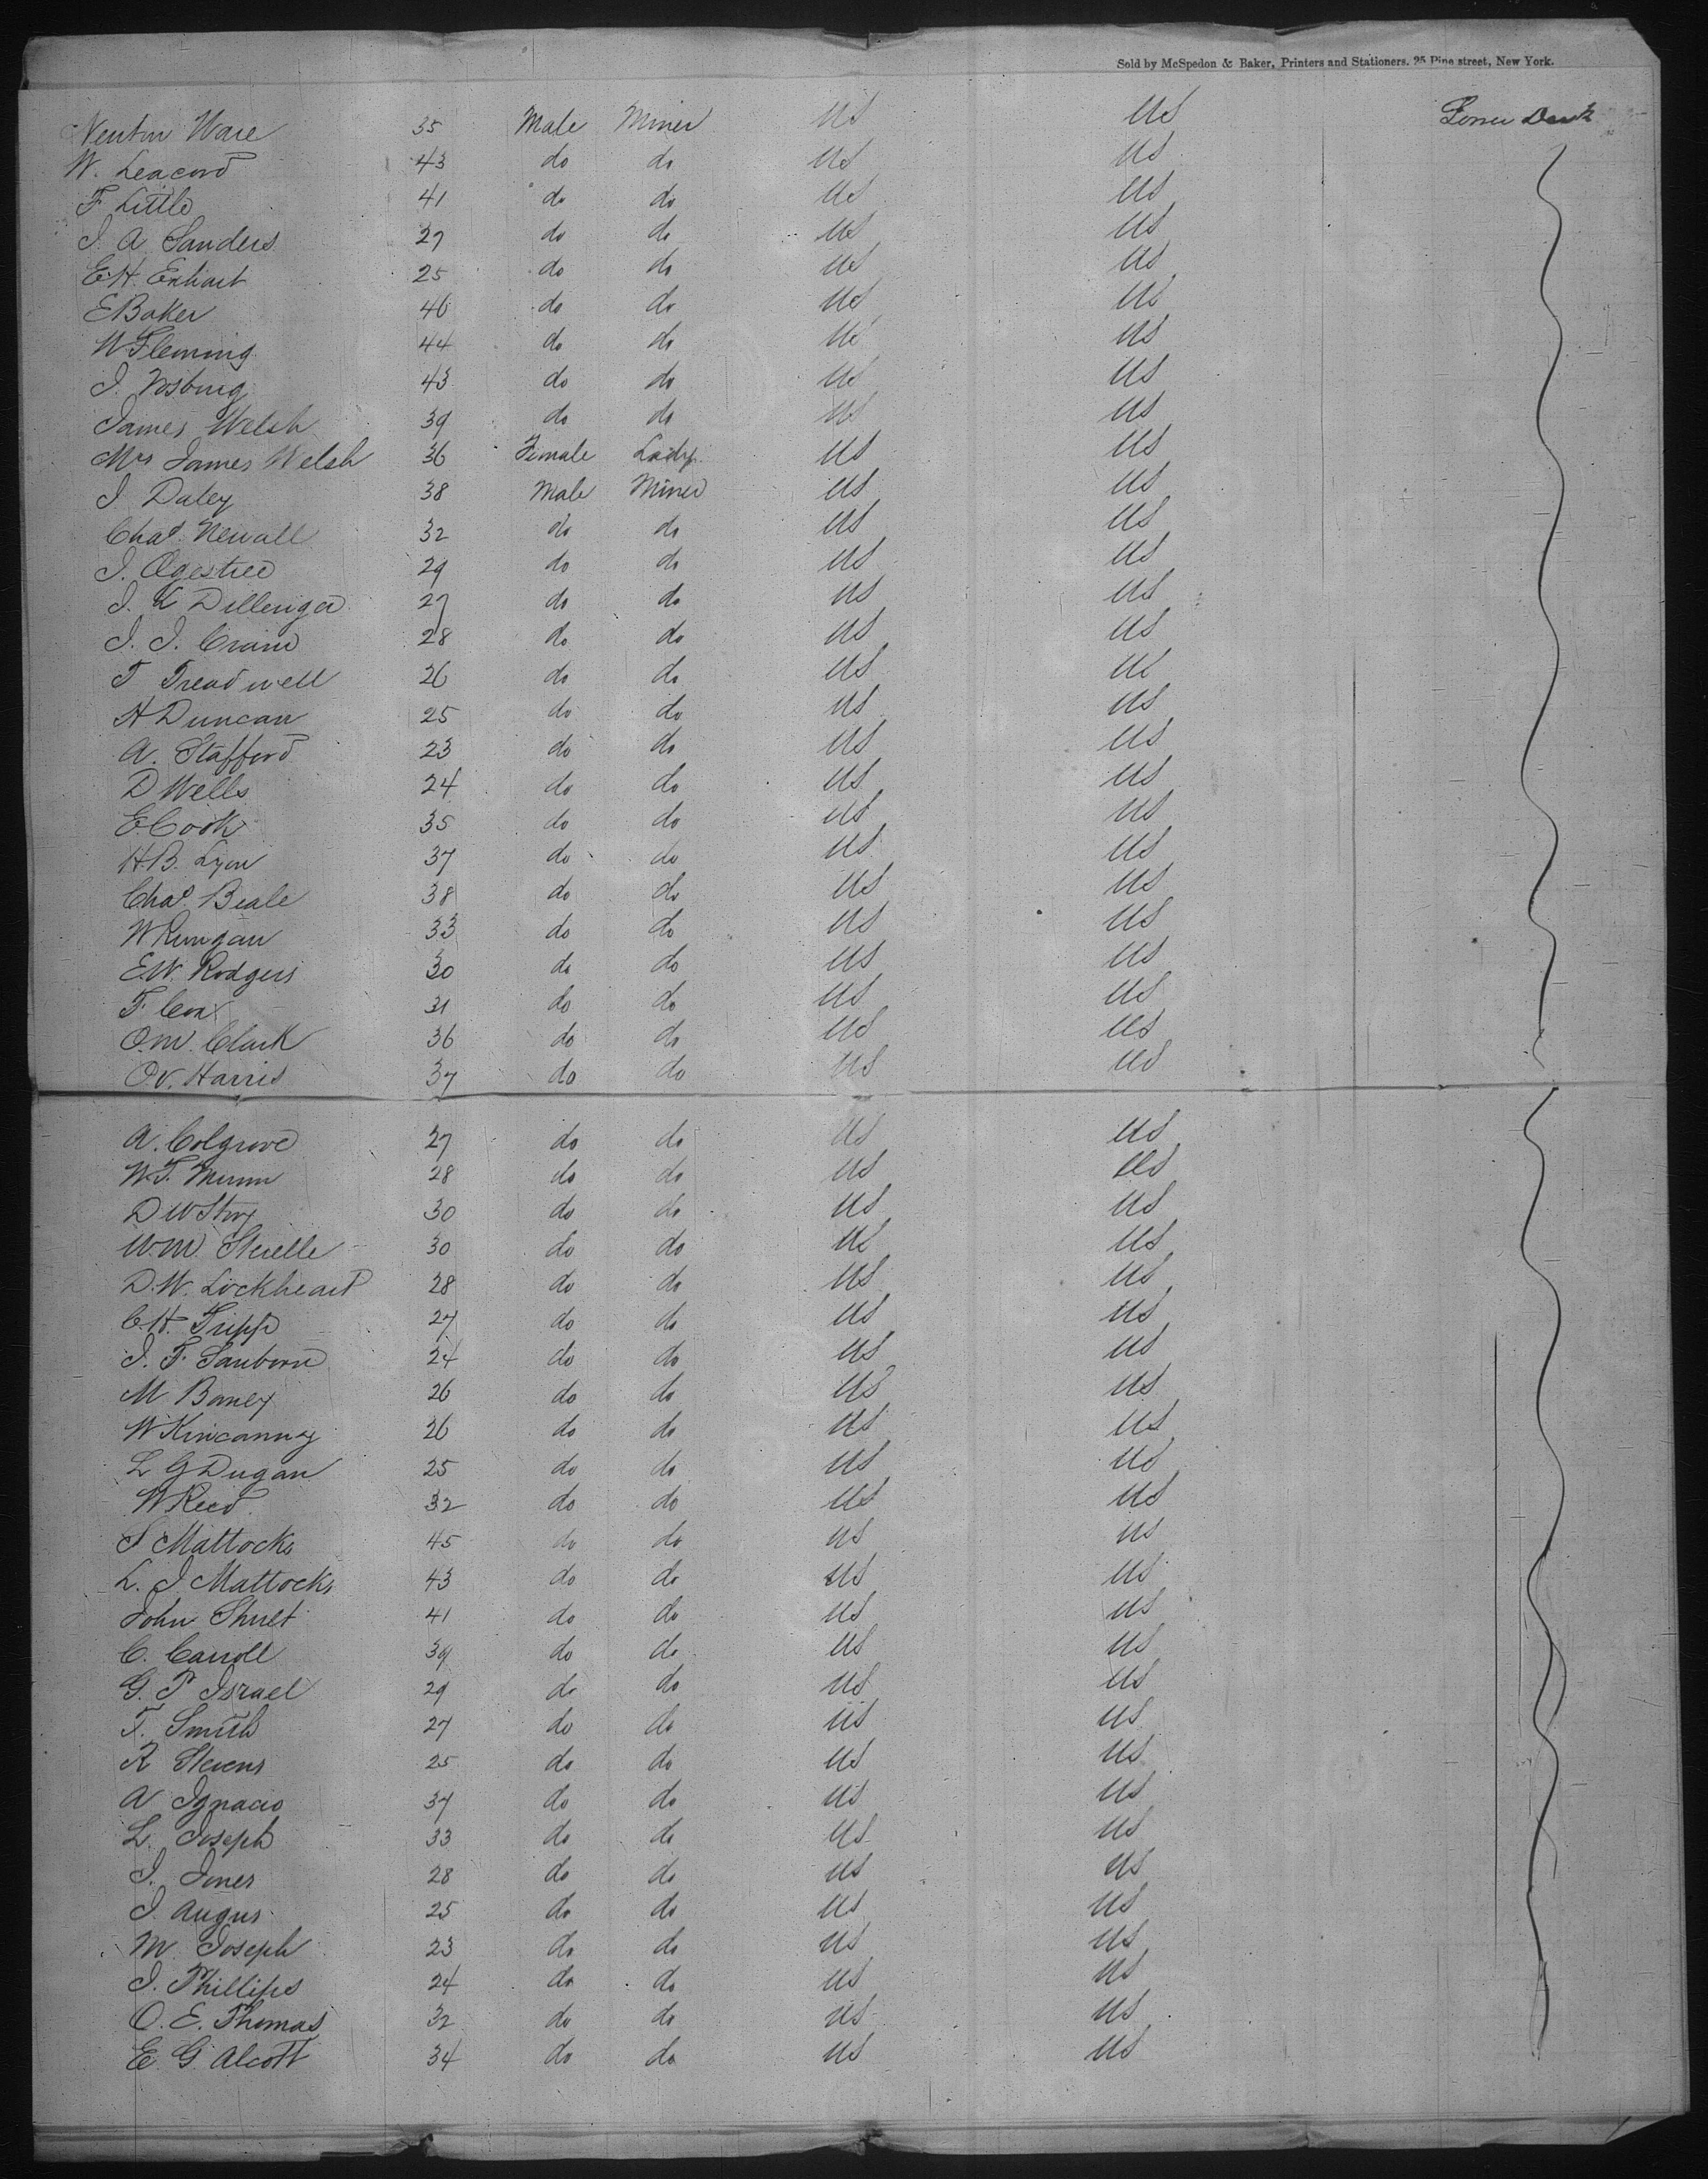 Sold by McSpedon & Baker, Printers and Stationers. 25 Pine street, New York.
Newton Ware 35 Male Miner US US Lower Deck
W. Leacord 43 do do US US
F Little 41 do do US US
J. A Sanders 27 do do US US
E.H. Enhart 25 do do US US
E Baker 46 do do US US
W Fleming 44 do do US US
J. Vosburg 43 do do US US
James Welsh 39 do do US US
Mrs James Welsh 36 Female Lady US US
J Daley 38 Male Miner US US
Chas. Newall 32 do do US US
J. 29 do do US US
J. L Dillenger 27 do do US US
J. J. Crane 28 do do US US
T Treadwell 26 do do US US
H Duncan 25 do do US US
A. Stafford 23 do do US US
D Wells 24 do do US US
E Cook 35 do do US US
H.B. Lyon 37 do do US US
Chas. Beale 38 do do US US
W Rungan 33 do do US US
E.W. Rodgers 30 do do US US
F. Cox 31 do do US US
O.M. Clark 36 do do US US
O.V. Harris 37 do do US US
A. Colgrove 27 do do US US
W.F. Munn 28 do do US US
D W Story 30 do do US US
W.M. Steelle 30 do do US US
D.W. Lockheart 28 do do US US
C.H. Tripp 27 do do US US
J. F. Sanborn 24 do do US US
M. Boney 26 do do US US
W Kincanny 26 do do US US
L G Dugan 25 do do US US
W Reed 32 do do US US
S Mattocks 45 do do US US
L. J Mattocks 43 do do US US
John Shult 41 do do US US
C. Carroll 39 do do US US
G. P Israel 29 do do US US
F. Smith 27 do do US US
R Stevens 25 do do US US
A Ignacio 37 do do US US
L. Joseph 33 do do US US
J. Jones 28 do do US US
J. Augus 25 do do US US
M Joseph 23 do do US US
J. Phillips 24 do do US US
O. E. Thomas 32 do do US US
E. G. Alcott 34 do do US US